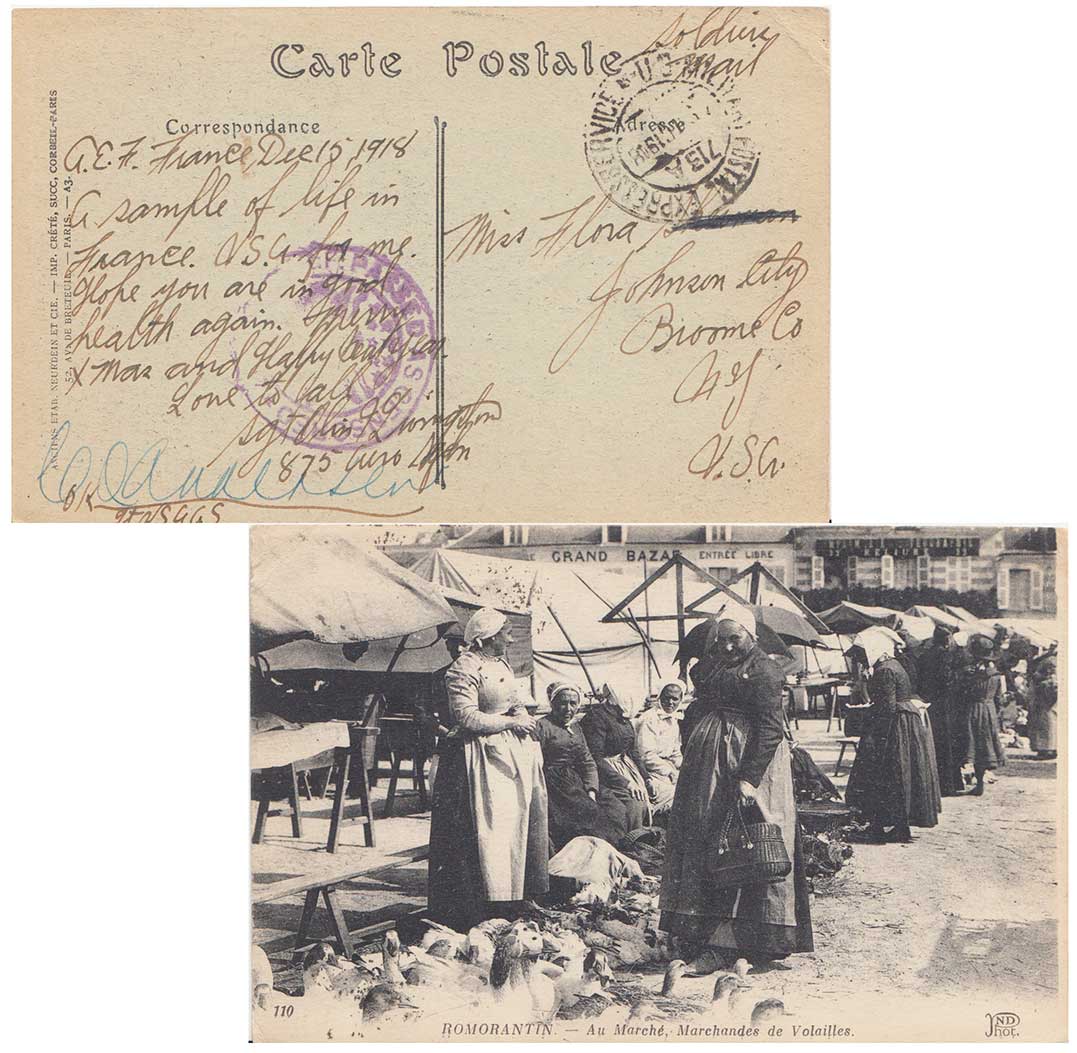 Carte Postale
Soldiers
Mail
Correspondance
Adresse
U.S. MILITARY POSTAL EXPRESS SERVICE
713A
A.E.F. France, Dec 15, 1918
A sample of life in
France. U.S.A for me.
Hope you are in good
health again. Merry
Xmas and Happy New Year
Love to all
Sgt Olin Livingston
875 Aero Sqdn
Miss Flora
Johnson City
Broome Co
N.Y.
U.S.A.
PASSED AS CENSORED
OK
ANCIENS ETAB. NEURDEIN ET CIE. — IMP. CRÉTÉ, SUCC, CORBEIL-PARIS
52, AV. DE BRETEUIL — PARIS. — A3.
GRAND BAZAR ENTRÉE LIBRE
110
ROMORANTIN. — Au Marché, Marchandes de Volailles.
ND
Phot.